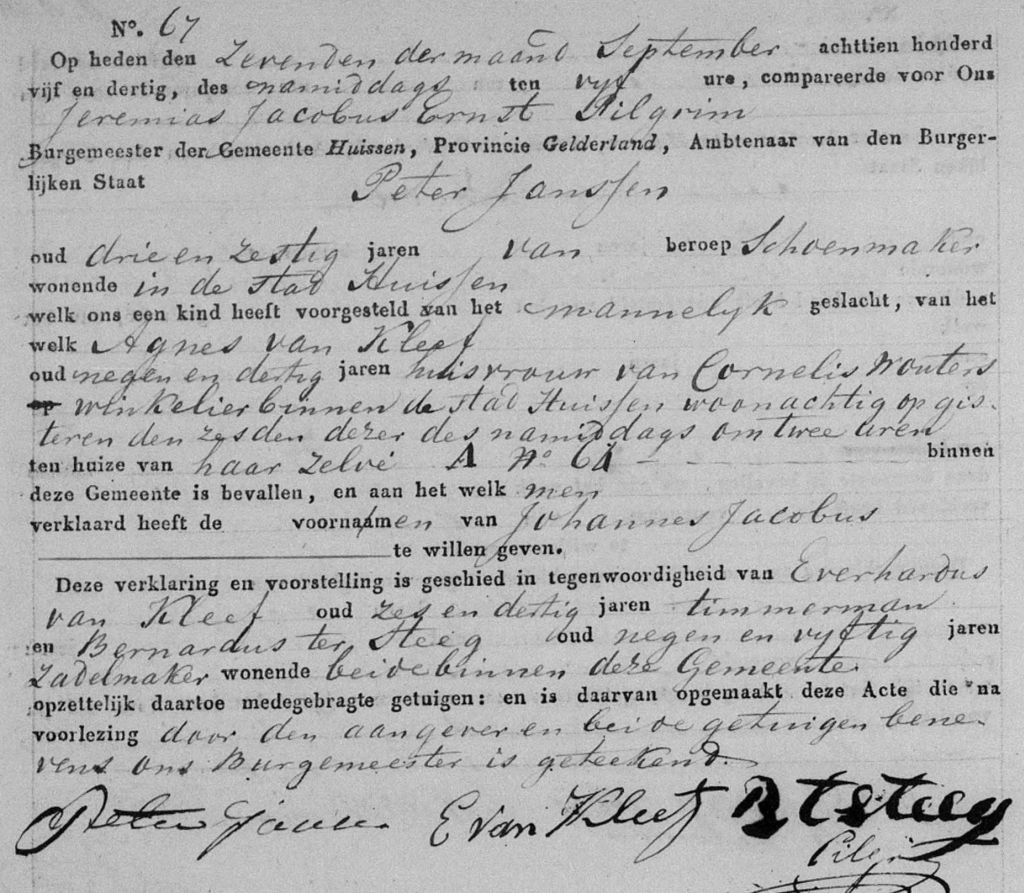 No. 67
Op heden den Zevenden der maand September achttien honderd
vijf en dertig, des namiddags ten vyf ure, compareerde voor Ons
Jeremias Jacobus Ernst Pilgrim
Burgemeester der Gemeente Huissen, Provincie Gelderland, Ambtenaar van den Burger-
lijken Staat Peter Janssen
oud drie en zestig jaren van beroep Schoenmaker
wonende in de stad Huissen
welk ons een kind heeft voorgesteld van het mannelyk geslacht, van het
welk Agnes van Kleef
oud negen en dertig jaren huisvrouw van Cornelis Wouters
op winkelier binnen de stad Huissen woonachtig op gis-
teren den zesden dezer des namiddags om twee uren
ten huize van haar zelve A No 61 binnen
deze Gemeente is bevallen, en aan het welk men
verklaard heeft de voornamen van Johannes Jacobus
te willen geven.
Deze verklaring en voorstelling is geschied in tegenwoordigheid van Everhardus
van Kleef oud zes en dertig jaren timmerman
en Bernardus ter Steeg oud negen en vyftig jaren
Zadelmaker wonende beide binnen deze Gemeente
opzettelijk daartoe medegebragte getuigen: en is daarvan opgemaakt deze Acte die na
voorlezing door den aangever en beide getuigen bene-
vens ons Burgemeester is geteekend.
Peter Janse E van Kleef B t Steeg
Pilgrim